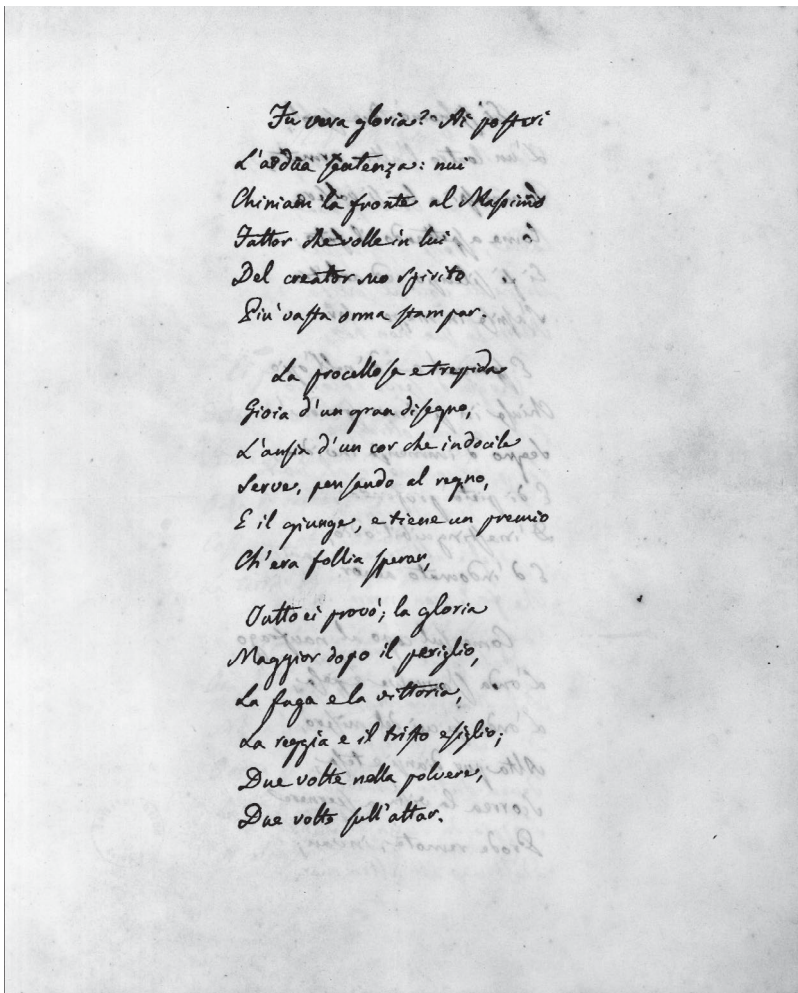 Fu vera gloria? Ai posteri
L'ardua sentenza: nui
Chiniam la fronte al Massimo
Fattor che volle in lui
Del creator suo spirito
Più vasta orma stampar.
La procellosa e trepida
Gioia d'un gran disegno,
L'ansia d'un cor che indocile
Serve, pensando al regno,
E il giunge, e tiene un premio
Ch'era follia sperar,
Tutto ei provò; la gloria
Maggior dopo il periglio,
La fuga e la vittoria,
La reggia e il tristo esiglio;
Due volte nella polvere,
Due volte sull'altar.